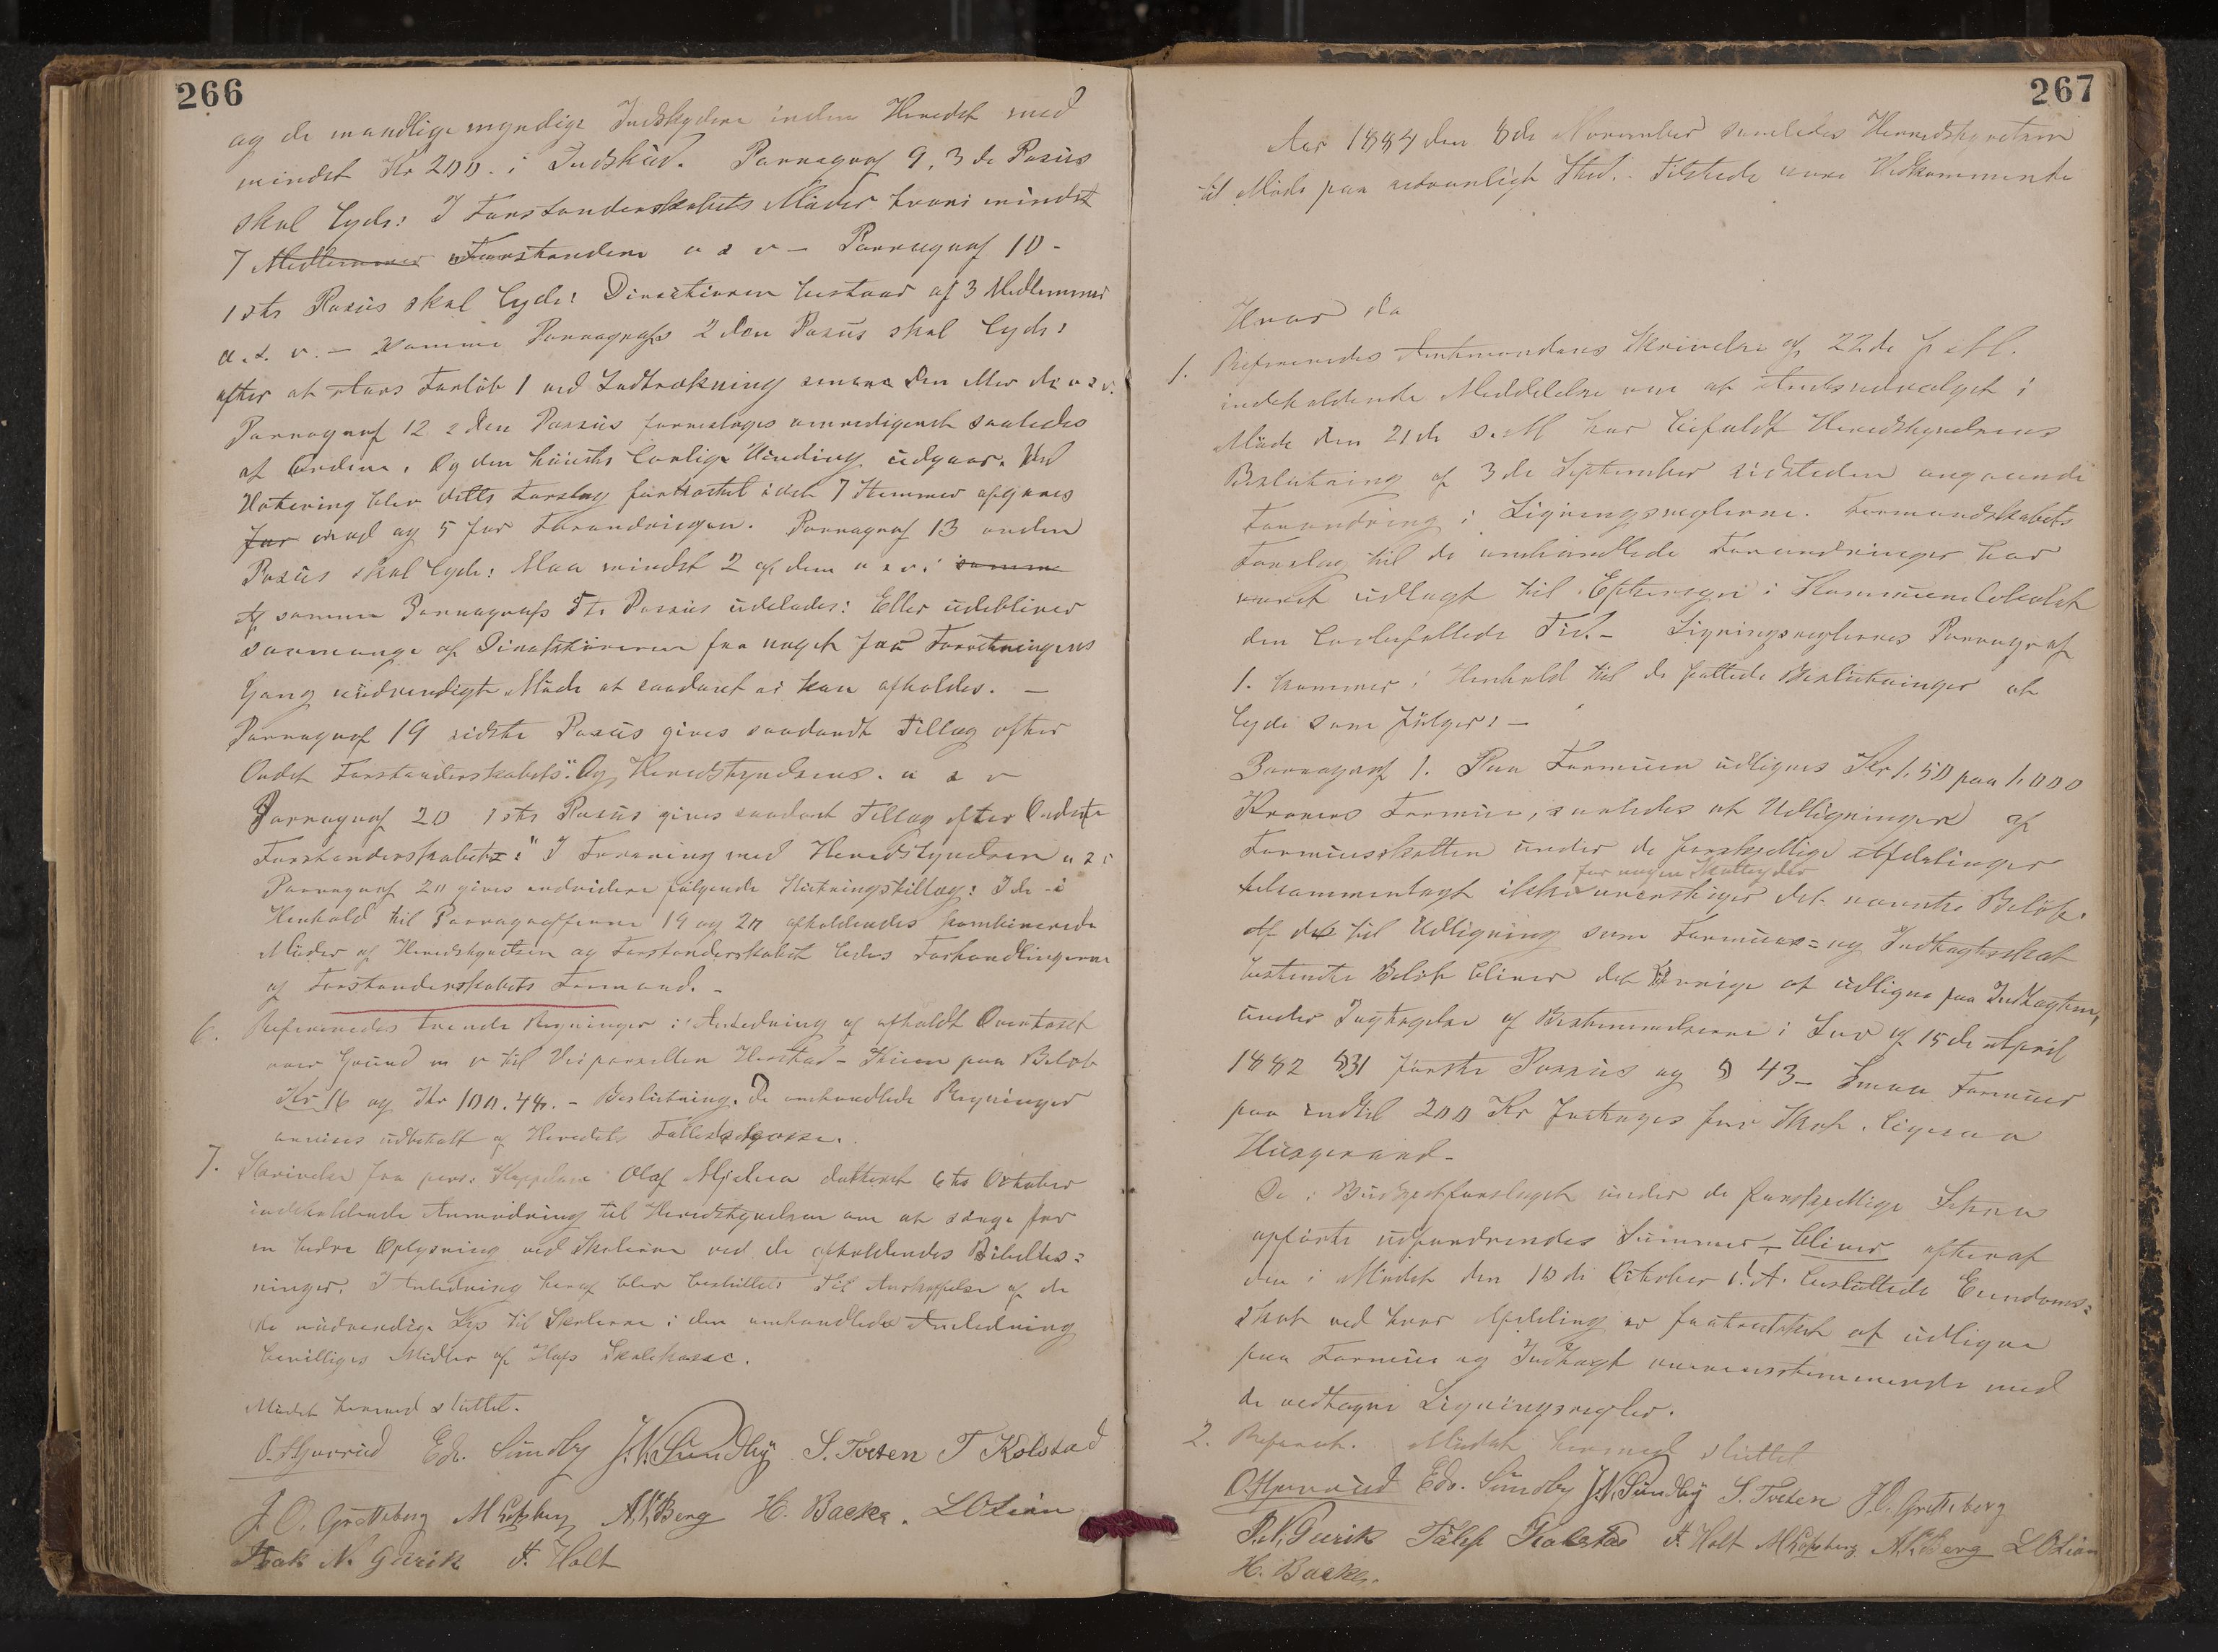 266
og de mandlige myndige Indskydere inden Heredet med
mindst Kr 200. i Indskud. Parragraf 9, 3de Passus
skal lyde: I Forstanderskabets Møder hvori mindst
7 Medlemmer Forstandere u s v — Parragraf 10 -
1ste Passus skal lyde: Direktionen bestaar af 3 Medlemmer
u. s. v. — Samme Parragrafs 2den Passus skal lyde:
efter at Aars Forløb 1 ved Lodtrækning senere den eller de u s v.
Parragraf 12 2den Passus foreslages omredigeret saaledes
at Ordene, Og den høieste lovlige Vinding udgaar. Ved
Votering blev dette Forslag forkastet idet 7 Stemmer afgaves
for mod og 5 for Forandringen. Parragraf 13 anden
Passus skal lyde: Maa mindst 2 af dem u s v: samme
Af samme Parragrafs 5te Passus udelades: Eller udebliver
saamange af Direktørerne fra noget for Forretningens
Gang nødvendigt Møde at saadant ei kan afholdes. —
Parragraf 19 sidste Passus gives saadandt Tillæg efter
Ordet Forstanderskabets". Og Heredstyrelsens. u s v
Parragraf 20 1ste Passus gives saadant Tillæg efter Ordet
Forstanderskabets:" I Forening med Heredstyrelsen u s v
Parragraf 20 gives endvidere følgende Slutningstillæg: I de i
Henhold til Parragrafferne 19 og 20 afholdendes kombinerede
Møder af Heredstyrelsen og Forstanderskabet ledes Forhandlingerne
af Forstanderskabets Formand. -
6. Refereredes tvende Regninger i Anledning af afholdt Overtaxt
over Grund m v til Veiparcellen Herstad - Skien paa Beløb
Kr 16 og Kr 100.44. - Beslutning. De omhandlede Regninger
anvises udbetalt af Heredets Fælleskasse.
7. Skrivelse fra pers. Kappelan Olaf Mjelva dateret 6te Oktober
indeholdende Anmodning til Heredstyrelsen om at sørge for
en bedre Oplysning ved Skolerne ved de afholdendes Bibellæs=
ninger. I Anledning heraf blev besluttet: Til Anskaffelse af de
de nødvendige Lys til Skolerne i den omhandlede Anledning
bevilliges Midler af Hofs Skolekasse.
Mødet hermed sluttet.
Edv. Sundby J. N. Sundby S. Tveten T Kolstad
J. O. Grøtteberg A. N. Berg H. Backe. L O Lian
Isak N. Geirik F. Holt
267
Aar 1884 den 8de November samledes Herredstyrelsen
til Møde paa sedvanligt Sted. Tilstede vare Vedkommende
Hvor da
1. Refereredes Amtmandens Skrivelse af 22de f. M.
indeholdende Meddelelse om at Amtsudvalget i
Møde den 21de s. M har bifaldt Heredstyrelsens
Beslutning af 3de September sidstleden angaaende
Forandring i Ligningsreglerne. Formandskabets
Forslag til de omhandlede Forandringer har
været udlagt til Eftersyn i Kommunelokalet
den lovbefallede Tid. - Ligningsreglernes Parragraf
1. kommer i Henhold til de fattede Beslutninger at
lyde som følger: —
Parragraf 1. Paa Formuen udlignes Kr 1,50 paa 1,000
Kroners Formue, saaledes at Udligningen af
Formuesskatten under de forskjellige Afdelinger
for nogen Skatteyder
tilsammenlagt ikke overstiger det nævnte Beløb.
Af det til Udligning som Formues= og Indtægtsskat
bestemte Beløb bliver det Øvrige at udligne paa Indtægten,
under Iagttagelse af Bestemmelserne i Lov af 15de April
1882 § 31 første Passus og § 43 — Smaa Formuer
paa indtil 200 Kr fritages for Skat, ligesaa
Husgeraad -
De i Budgetforslaget under de forskjellige Skoler
opførte udfordrendes Summer — bliver efterat
den i Mødet den 10de Oktober d. A. besluttede Eiendoms=
skat ved hver Afdeling er fratrukket at udligne
paa Formue og Indtægt overensstemmende med
de vedtagne Ligningsregler.
2. Referat. Mødet hermed sluttet
Edv. Sundby J. N. Sundby S. Tveten J. O. Grøtteberg
I. N. Geirik F. Holt A. N. Berg L O Lian
H. Backe.